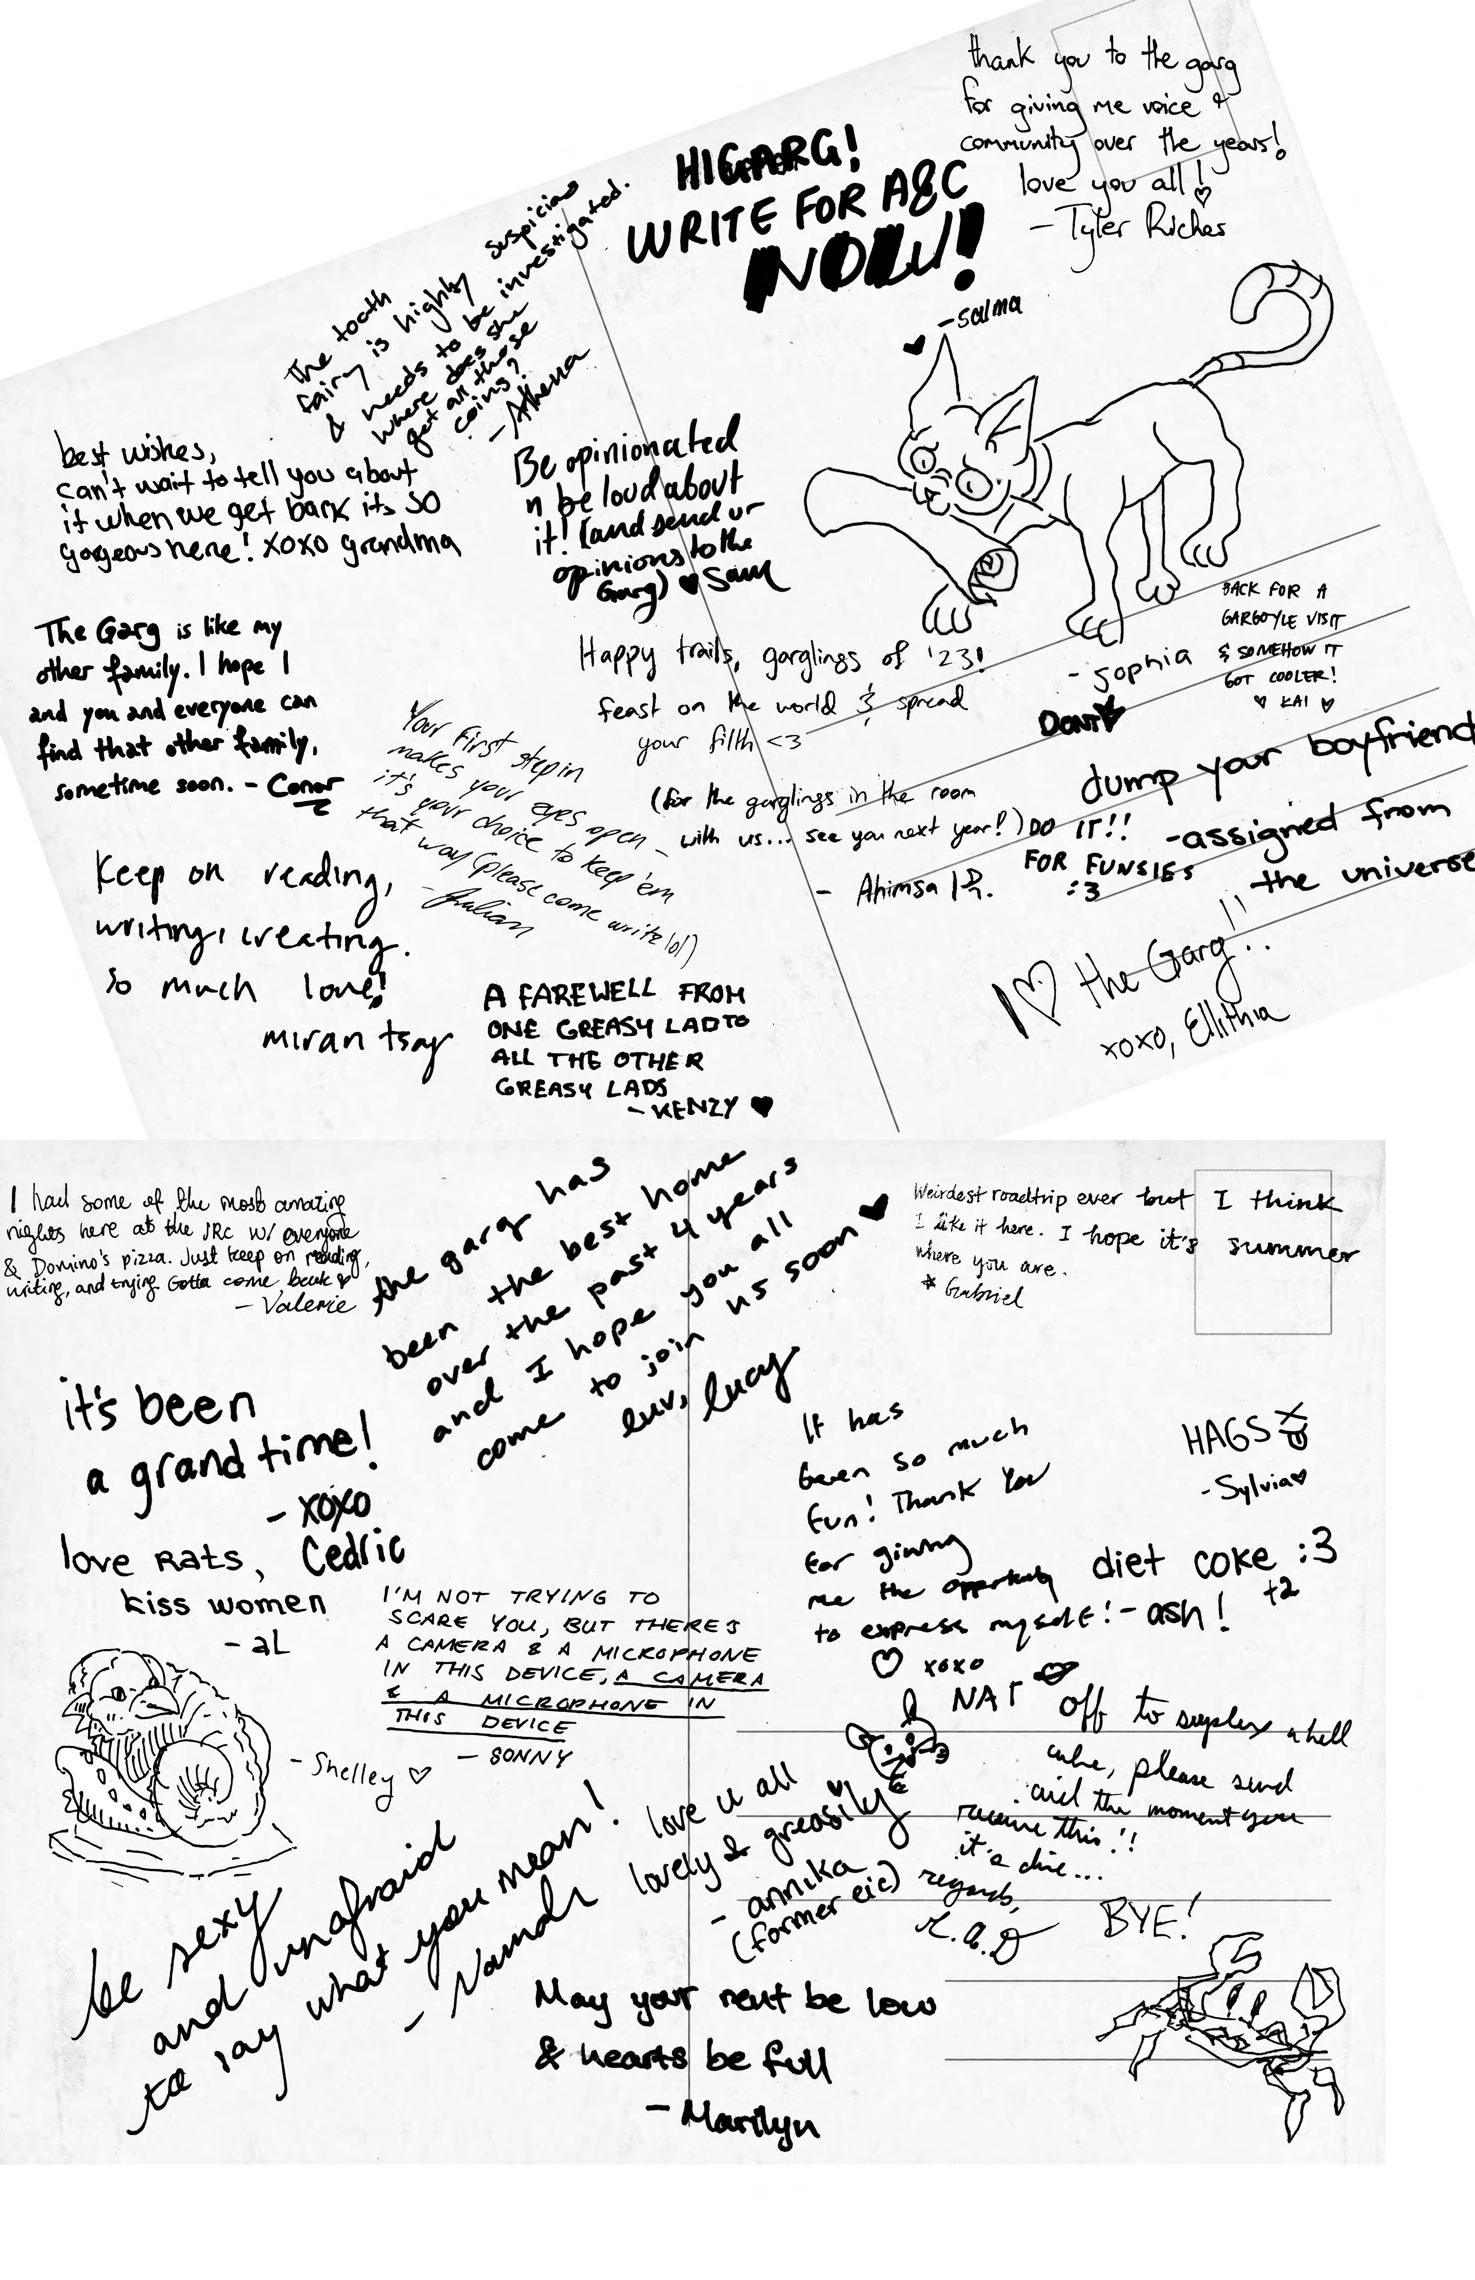 thank you to the garg
for giving me voice &
community over the years!
love you all!
- Tyler Riches
HI GARG!
WRITE FOR A&C
NOW!
- salma
The tooth
fairy is highly suspicious
& needs to be investigated.
where does she
get all those
coins?
- Athena
best wishes,
can't wait to tell you about
it when we get back its so
gorgeous here! xoxo grandma
Be opinionated
n be loud about
it! (and send ur
opinions to the
Garg) Sam
The Garg is like my
other family. I hope I
and you and everyone can
find that other family,
sometime soon. - Conor
Your first step in
makes your eyes open -
it's your choice to keep 'em
that way (please come write lol)
- Julian
Happy trails, garglings of '23!
feast on the world & spread
your filth <3
(for the garglings in the room
with us... see you next year!)
- Ahimsa
- sophia
BACK FOR A
GARGOYLE VISIT
& SOMEHOW IT
GOT COOLER!
KAI
DONT
dump your boyfriend
DO IT!!
FOR FUNSIES
:3
- assigned from
the universe
Keep on reading,
writing, creating.
so much love!
miran tsay
A FAREWELL FROM
ONE GREASY LAD TO
ALL THE OTHER
GREASY LADS
- KENZY
I ♡ the Garg!!
xoxo, Ellithia
I had some of the most amazing
nights here at the JRC w/ everyone
& Domino's pizza. Just keep on reading,
writing, and trying. Gotta come back
- Valerie
the garg has
been the best home
over the past 4 years
and I hope you all
come to join us soon
luv, lucy
Weirdest roadtrip ever but I think
I like it here. I hope it's summer
where you are.
* Gabriel
it's been
a grand time!
- xoxo
Cedric
It has
been so much
fun! Thank You
for giving
me the opportunity
to express myself! - ash!
xoxo
HAGS XP
- Sylvia
love Rats,
kiss women
- aL
diet coke :3
+2
I'M NOT TRYING TO
SCARE YOU, BUT THERE'S
A CAMERA & A MICROPHONE
IN THIS DEVICE, A CAMERA
& A MICROPHONE IN
THIS DEVICE
- SONNY
NAT
- Shelley ♡
off to suplex a hell
cube, please send
aid the moment you
receive this!!
it's dire...
regards,
love u all
lovely & greasily
- annika
(former eic)
be sexy
and unafraid
to say what you mean!
BYE!
May your rent be low
& hearts be full
- Marilyn